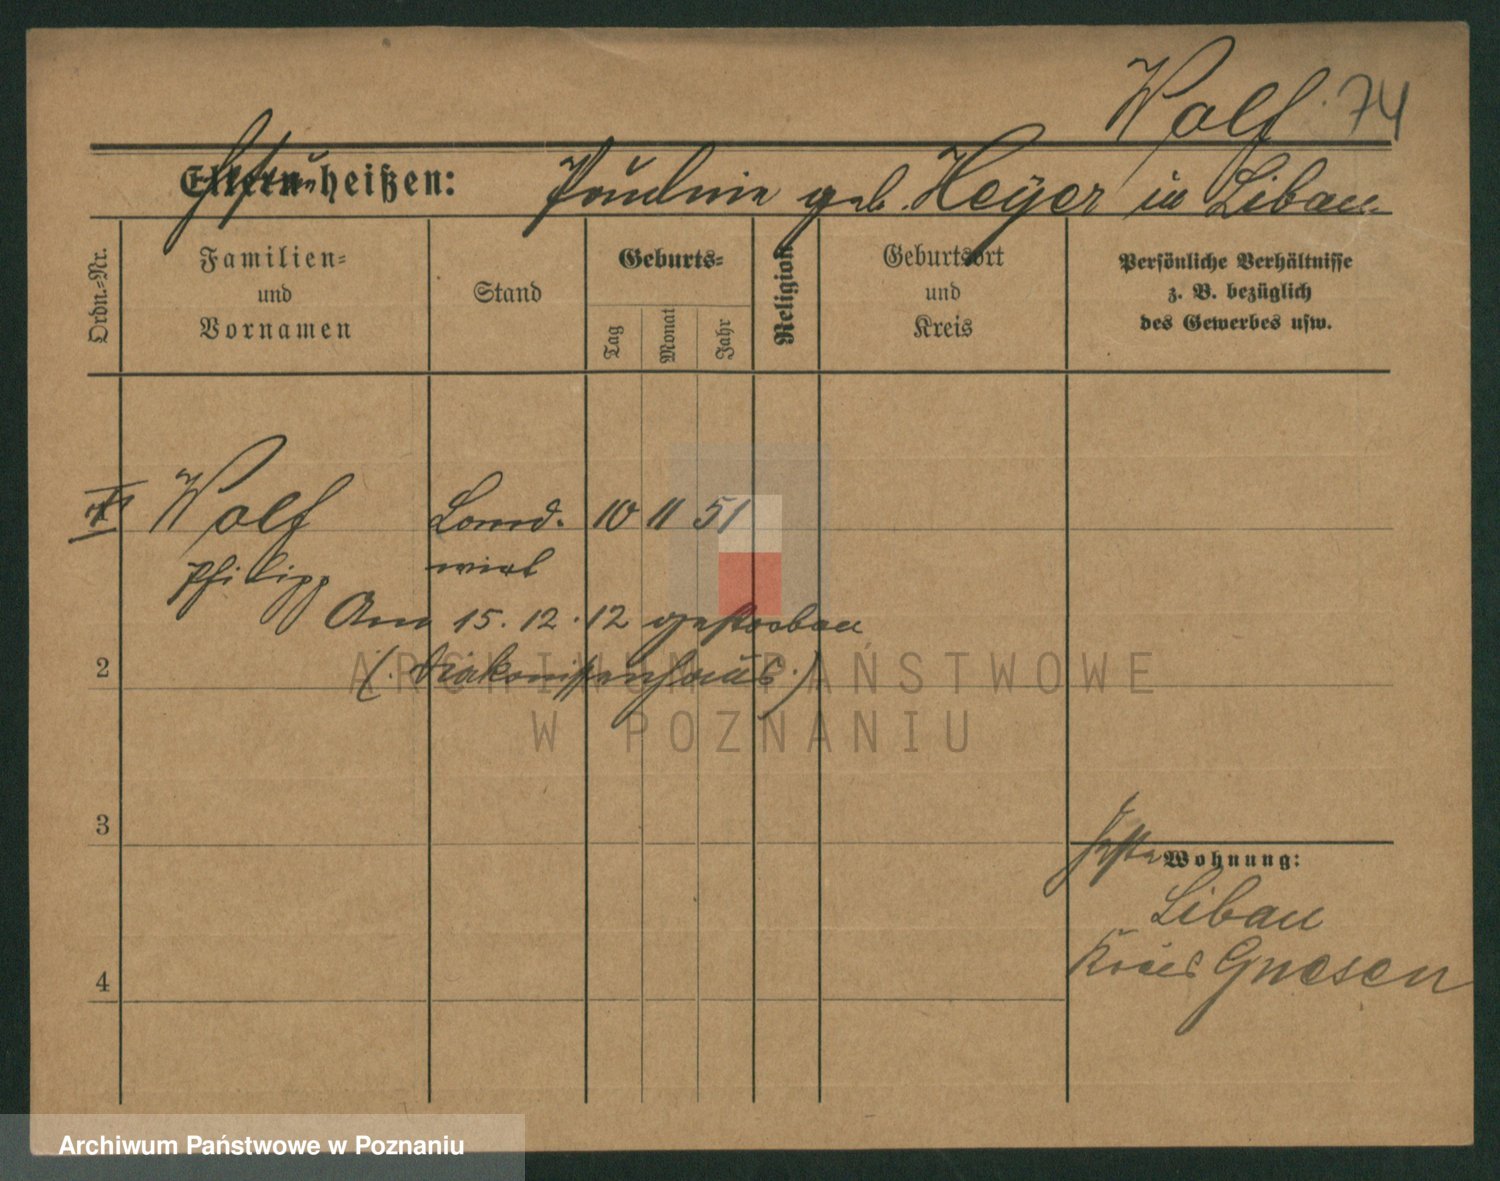 Wolf 74
Eltern heißen: Pauline geb. Heyer in Libau
Ordn.-Nr.
Familien-
und
Vornamen
Stand
Geburts-
Tag
Monat
Jahr
Religion
Geburtsort
und
Kreis
Persönliche Verhältnisse
z. B. bezüglich
des Gewerbes usw.
Wolf Land- 10 11 51
Philipp wirt
Am 15.12.12 gestorben
2 (Diakonissenhaus.)
ARCHIWUM PAŃSTWOWE
W POZNANIU
3
Wohnung:
Libau
Kreis Gnesen
4
Archiwum Państwowe w Poznaniu